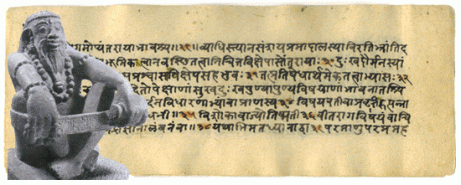 गमोप्यंतरायाभावश्च॥२९॥व्याधिस्त्यानसंशयप्रमादालस्याविरतिभ्रांतिद
भूमिकत्वानवस्थितत्वानिचित्तविक्षेपास्तेंतरायाः ३० दुःखदौर्मनस्यां
प्रश्वासाविक्षेपसहभुवः ३१ तत्प्रतिषेधार्थमेकतत्वाभ्यासः ३२
दितोपेक्षाणां सुखदुःखपुण्यापुण्यविषयाणांभावनातश्चि
र्दनविधारणाभ्यांवाप्राणस्य ३४ विषयवतीवाप्रवृत्तिरुत्पन्ना
धनी॥ ३५ विशोकावाज्योतिष्मती ३६ वीतरागविषयंवाचि
लंबनंवा॥ ३८ यथाभिमतध्यानाद्वा ३९ परमाणुपरममह